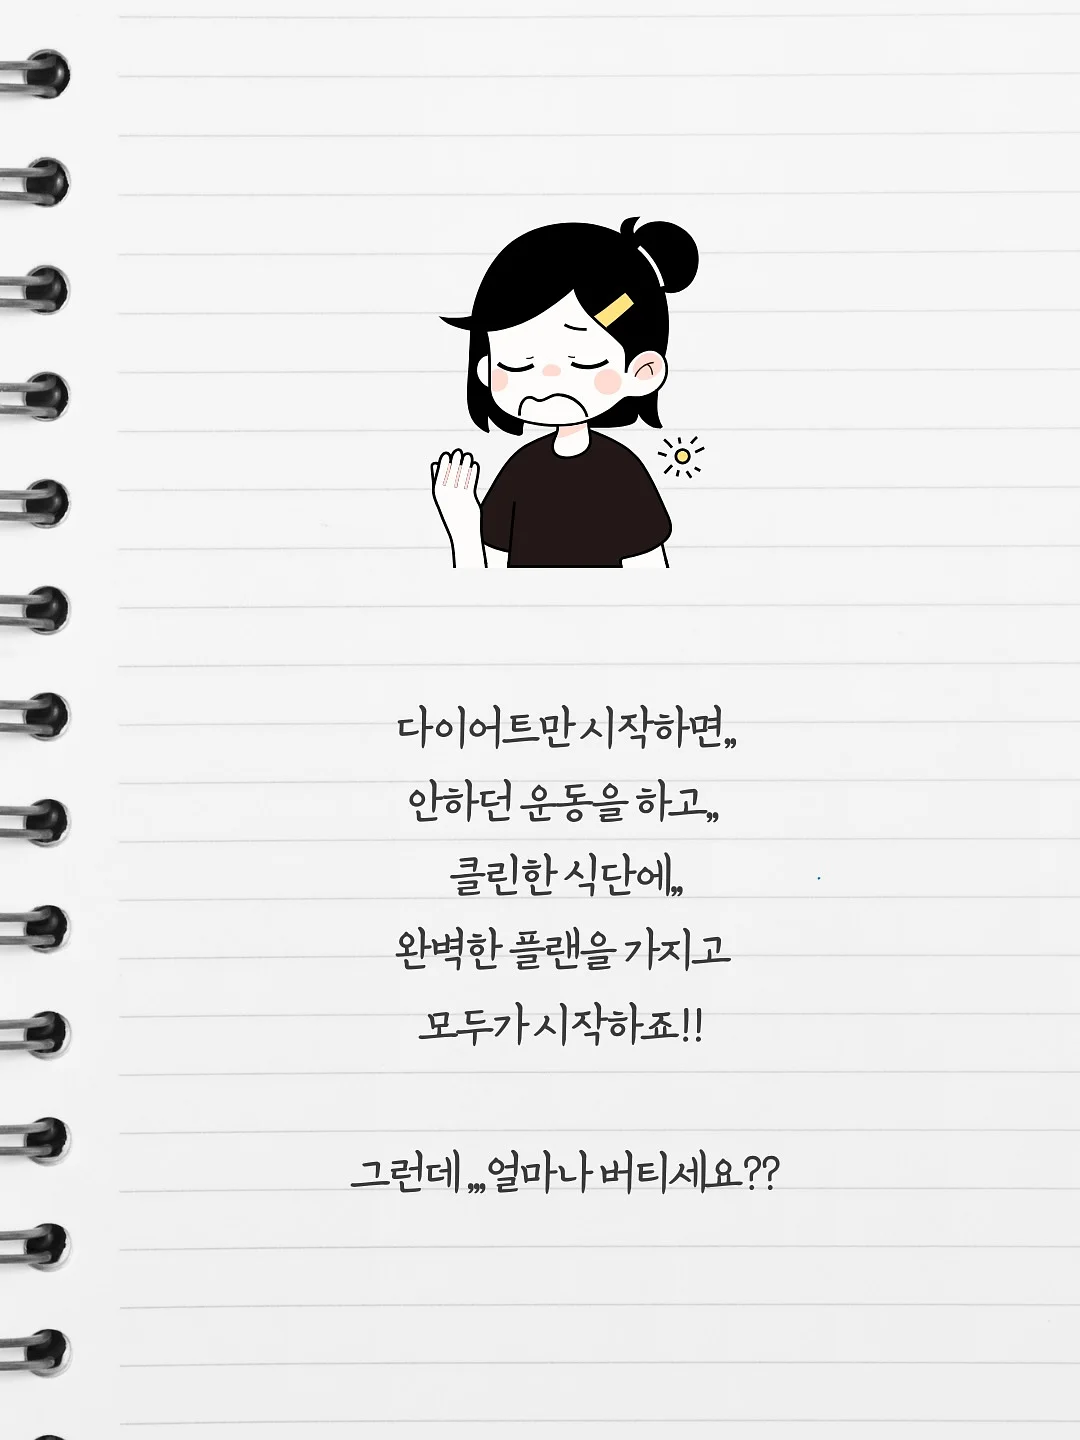 다이어트만 시작하면,,
안하던 운동을 하고,,
클린한 식단에,,
완벽한 플랜을 가지고
모두가 시작하죠!!
그런데,,,얼마나 버티세요??